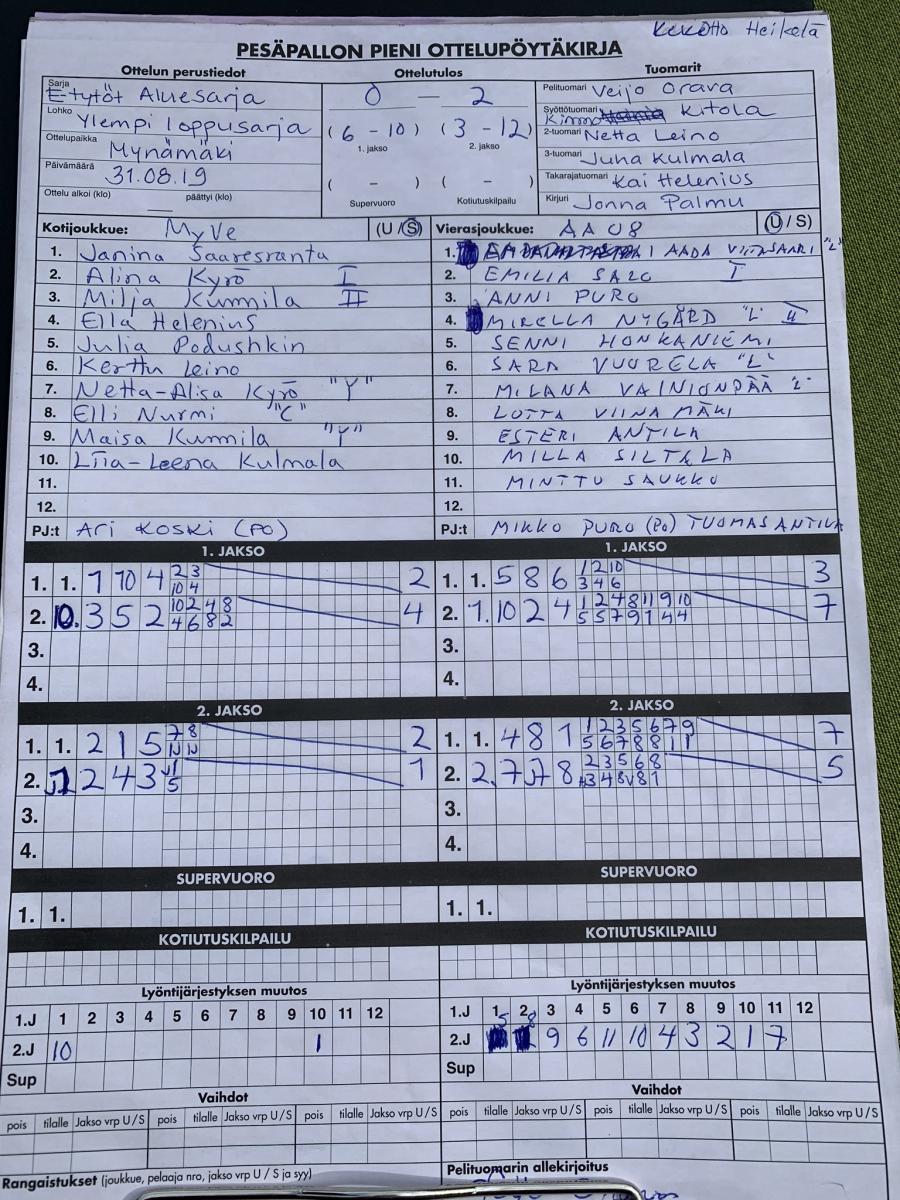 Heikelä
PESÄPALLON PIENI OTTELUPÖYTÄKIRJA
Ottelun perustiedot
Sarja E-tytöt Aluesarja
Lohko Ylempi loppusarja
Ottelupaikka Mynämäki
Päivämäärä 31.08.19
Ottelu alkoi (klo) päättyi (klo)
Ottelutulos
0 - 2
(6 - 10) (3 - 12)
1. jakso 2. jakso
( - ) ( - )
Supervuoro Kotiutuskilpailu
Tuomarit
Pelituomari Veijo Orava
Syöttötuomari Kimmo Kitola
2-tuomari Netta Leino
3-tuomari Juha Kulmala
Takarajatuomari Kai Helenius
Kirjuri Jonna Palmu
Kotijoukkue: MyVe (U/S)
1. Janina Saaresranta
2. Alina Kyrö I
3. Milja Kunnila II
4. Ella Helenius
5. Julia Podushkin
6. Kerttu Leino
7. Netta-Alisa Kyrö "Y"
8. Elli Nurmi "C"
9. Maisa Kunnila "Y"
10. Liia-Leena Kulmala
11.
12.
PJ:t Ari Koski (PO)
Vierasjoukkue: AA 08 (U/S)
1. AADA VIITASAARI "L"
2. EMILIA SALO I
3. ANNI PURO
4. MIRELLA NYGÅRD "L" II
5. SENNI HONKANIEMI
6. SARA VUORELA "L"
7. MILANA VAINIONPÄÄ "L"
8. LOTTA VIINAMÄKI
9. ESTERI ANTILA
10. MILLA SILTALA
11. MINTTU SAUKKO
12.
PJ:t MIKKO PURO (PO) TUOMAS ANTILA
1. JAKSO
1. 1. 7 10 4
2 3
10 4
2
2. 10. 3 5 2
10 2 4 8
4 6 8 2
4
3.
4.
1. JAKSO
1. 1. 5 8 6
1 2 10
3 4 6
3
2. 7. 10 2 4
1 2 4 8 11 9 10
5 5 7 9 1 4 4
7
3.
4.
2. JAKSO
1. 1. 2 1 5
7 8
2
2. 2 4 3
1
5
1
3.
4.
2. JAKSO
1. 1. 4 8 1
1 2 3 5 6 7 9
5 6 7 8 8 1 1
7
2. 2. 7 8
2 3 5 6 8
5
3.
4.
SUPERVUORO
1. 1.
SUPERVUORO
1. 1.
KOTIUTUSKILPAILU
KOTIUTUSKILPAILU
Lyöntijärjestyksen muutos
1.J 1 2 3 4 5 6 7 8 9 10 11 12
2.J 10 1
Sup
Lyöntijärjestyksen muutos
1.J 1 2 3 4 5 6 7 8 9 10 11 12
5 8
2.J 9 6 11 10 4 3 2 1 7
Sup
Vaihdot
pois tilalle Jakso vrp U/S pois tilalle Jakso vrp U/S pois tilalle Jakso vrp U/S
Vaihdot
pois tilalle Jakso vrp U/S pois tilalle Jakso vrp U/S pois tilalle Jakso vrp U/S
Rangaistukset (joukkue, pelaaja nro, jakso vrp U / S ja syy)
Pelituomarin allekirjoitus